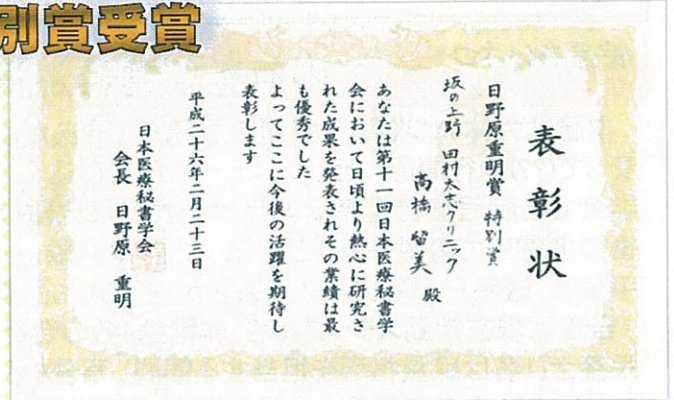 別賞受賞
表彰状
日野原重明賞 特別賞
坂の上野 田村太志クリニック
高橋 留美 殿
あなたは第十一回日本医療秘書学
会において日頃より熱心に研究さ
れた成果を発表されその業績は最
も優秀でした
よってここに今後の活躍を期待し
表彰します
平成二十六年二月二十三日
日本医療秘書学会
会長 日野原 重明